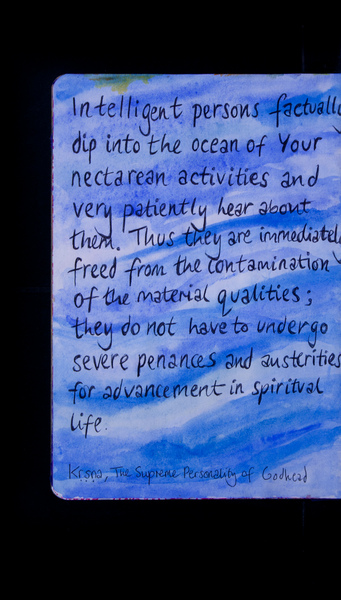 Intelligent persons factually
dip into the ocean of Your
nectarean activities and
very patiently hear about
them. Thus they are immediately
freed from the contamination
of the material qualities;
they do not have to undergo
severe penances and austerities
for advancement in spiritual
life.
Kṛṣṇa, The Supreme Personality of Godhead